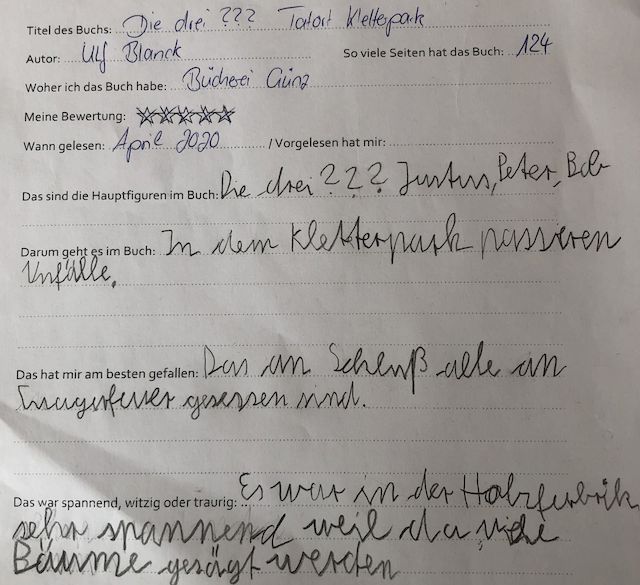 Titel des Buchs: Die drei ??? Tatort Kletterpark
Autor: Ulf Blanck So viele Seiten hat das Buch: 124
Woher ich das Buch habe: Bücherei Günz
Meine Bewertung: ☆☆☆☆☆
Wann gelesen: April 2020 / Vorgelesen hat mir:
Das sind die Hauptfiguren im Buch: Die drei ??? Justus, Peter, Bob
Darum geht es im Buch: In dem Kletterpark passieren
Unfälle.
Das hat mir am besten gefallen: Das an Schluß alle an
gesessen sind.
Das war spannend, witzig oder traurig: Es war in der Holzfabrik
sehr spannend weil da viele
Bäume gesägt werden